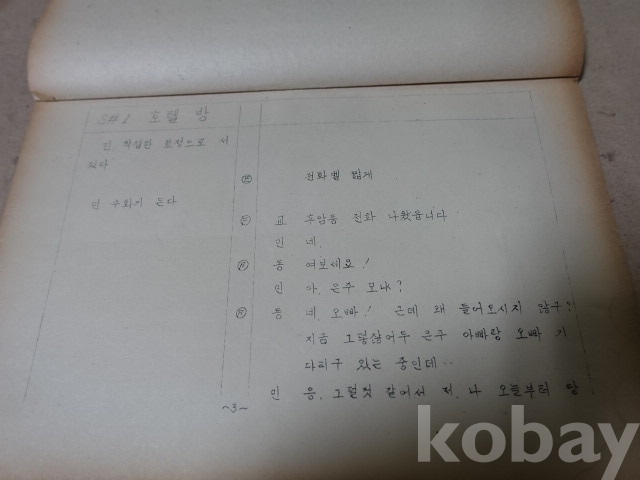 S#2 호텔 방
민 착잡한 표정으로 서
있다
전화벨 짧게
민 수화기 든다
교 후암동 전화 나왔읍니다
민 네.
동 여보세요!
민 아, 은주 모냐?
동 네, 오빠! 근데 왜 들어오시지 않구?
지금 그렇잖어두 은주 아빠랑 오빠 기
다리구 있는 중인데..
민 응, 그럴것 같어서 저, 나 오늘부터 당
~3~
kobay